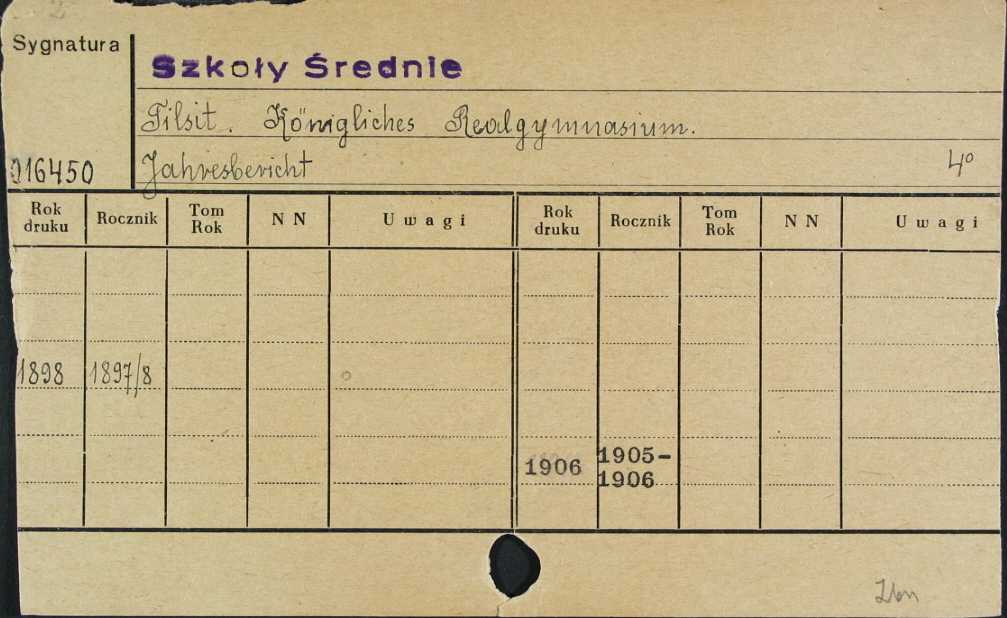 Sygnatura
Szkoły Średnie
Tilsit. Königliches Realgymnasium.
016450
Jahresbericht 4º
Rok druku Rocznik Tom Rok N N Uwagi Rok druku Rocznik Tom Rok N N Uwagi
1898 1897/8
1906 1905-
1906